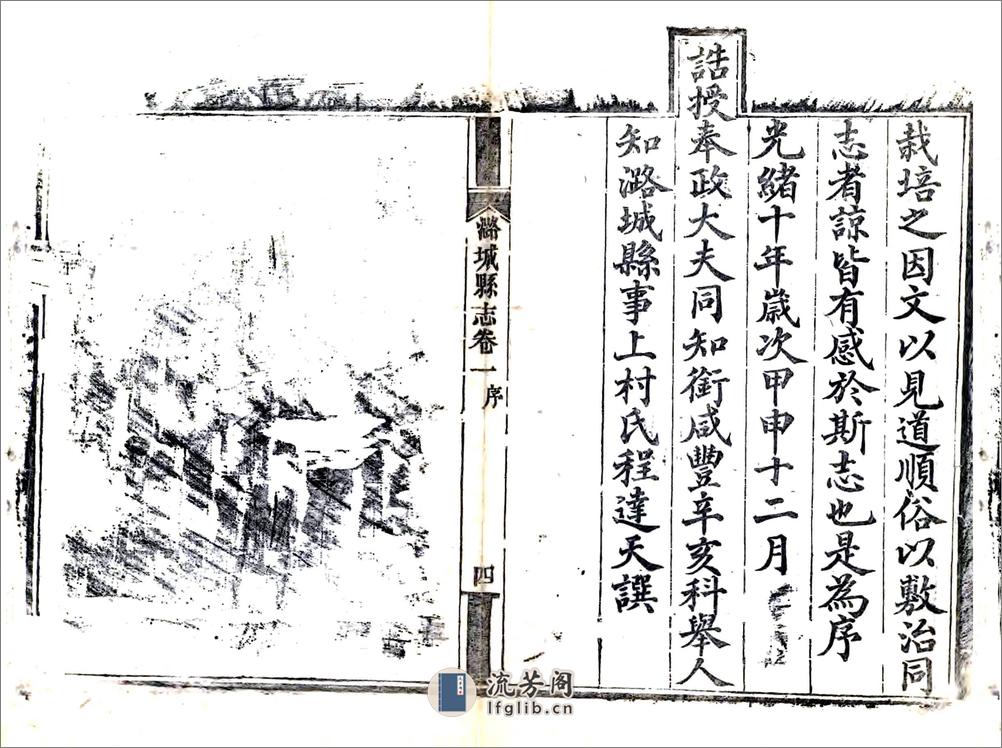 栽培之因文以見道順俗以敷治同
志者諒皆有感於斯志也是為序
光緒十年歲次甲申十二月
誥授奉政大夫同知銜咸豐辛亥科舉人
知潞城縣事上村氏程達天譔
潞城縣志卷一 序 四
流芳阁
lfglib.cn